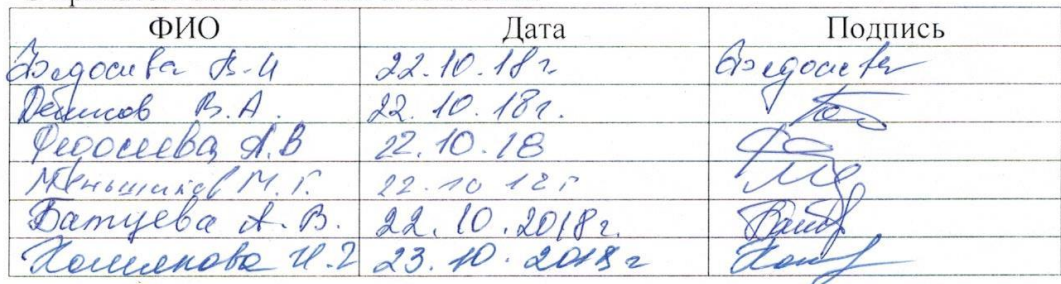 ФИО Дата Подпись
Федосиева В-И 22.10.18г. Федосиева
Денисов В.А. 22.10.18г.
Федосеева А.В 22.10.18
Меньшиков М.Г. 22.10 18г
Батуева А.В. 22.10.2018г.
23.10.2018г